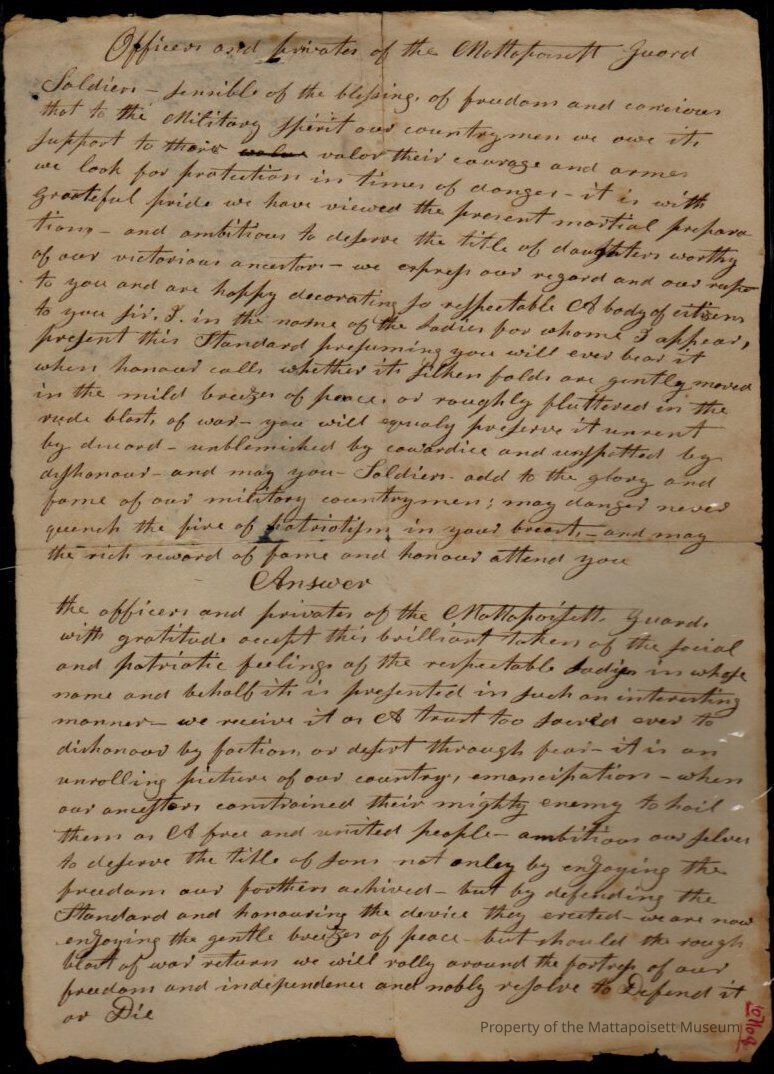 Officers and privates of the Mattapoisett Guard
Soldiers - sensible of the blessings of freedom and concious
that to the Military spirit our countrymen we owe its
support to their valor their courage and armes
we look for protection in times of danger - it is with
grateful pride we have viewed the present martial prepara
tions - and ambitious to deserve the title of daughters worthy
of our victorious ancestors - we express our regard and our
to you and are happy decorating so respectable A body of citizens
to you sir, I. in the name of the Ladies for whome I appear,
present this Standard presuming you will ever bear it
when honour calls whether its silken folds are gently moved
in the mild breezes of peace, or roughly fluttered in the
rude blasts of war - you will equaly preserve it unrent
by discord - unblemished by cowardice and unspotted by
dishonour - and may you - Soldiers - add to the glory and
fame of our military countrymen; may danger never
quench the fire of patriotism in your breasts, - and may
the rich reward of fame and honour attend you
Answer
the officers and privates of the Mattapoisett Guards
with gratitude accept this brilliant token of the social
and patriotic feelings of the respectable Ladies in whose
name and behalf its is presented in such an interesting
manner - we receive it as A trust too sacred ever to
dishonour by factions or desert through fear - it is an
unrolling picture of our countrys emancipation - when
our ancestors constrained their mighty enemy to hail
them as A free and united people - ambitious our selves
to deserve the title of sons not onley by enjoying the
freedom our forthers achived - but by defending the
Standard and honouring the device they erected - we are now
enjoying the gentle breezes of peace but should the rough
blast of war return we will rally around the fortress of our
freedom and independence and nobly resolve to Defend it
or Die
Property of the Mattapoisett Museum